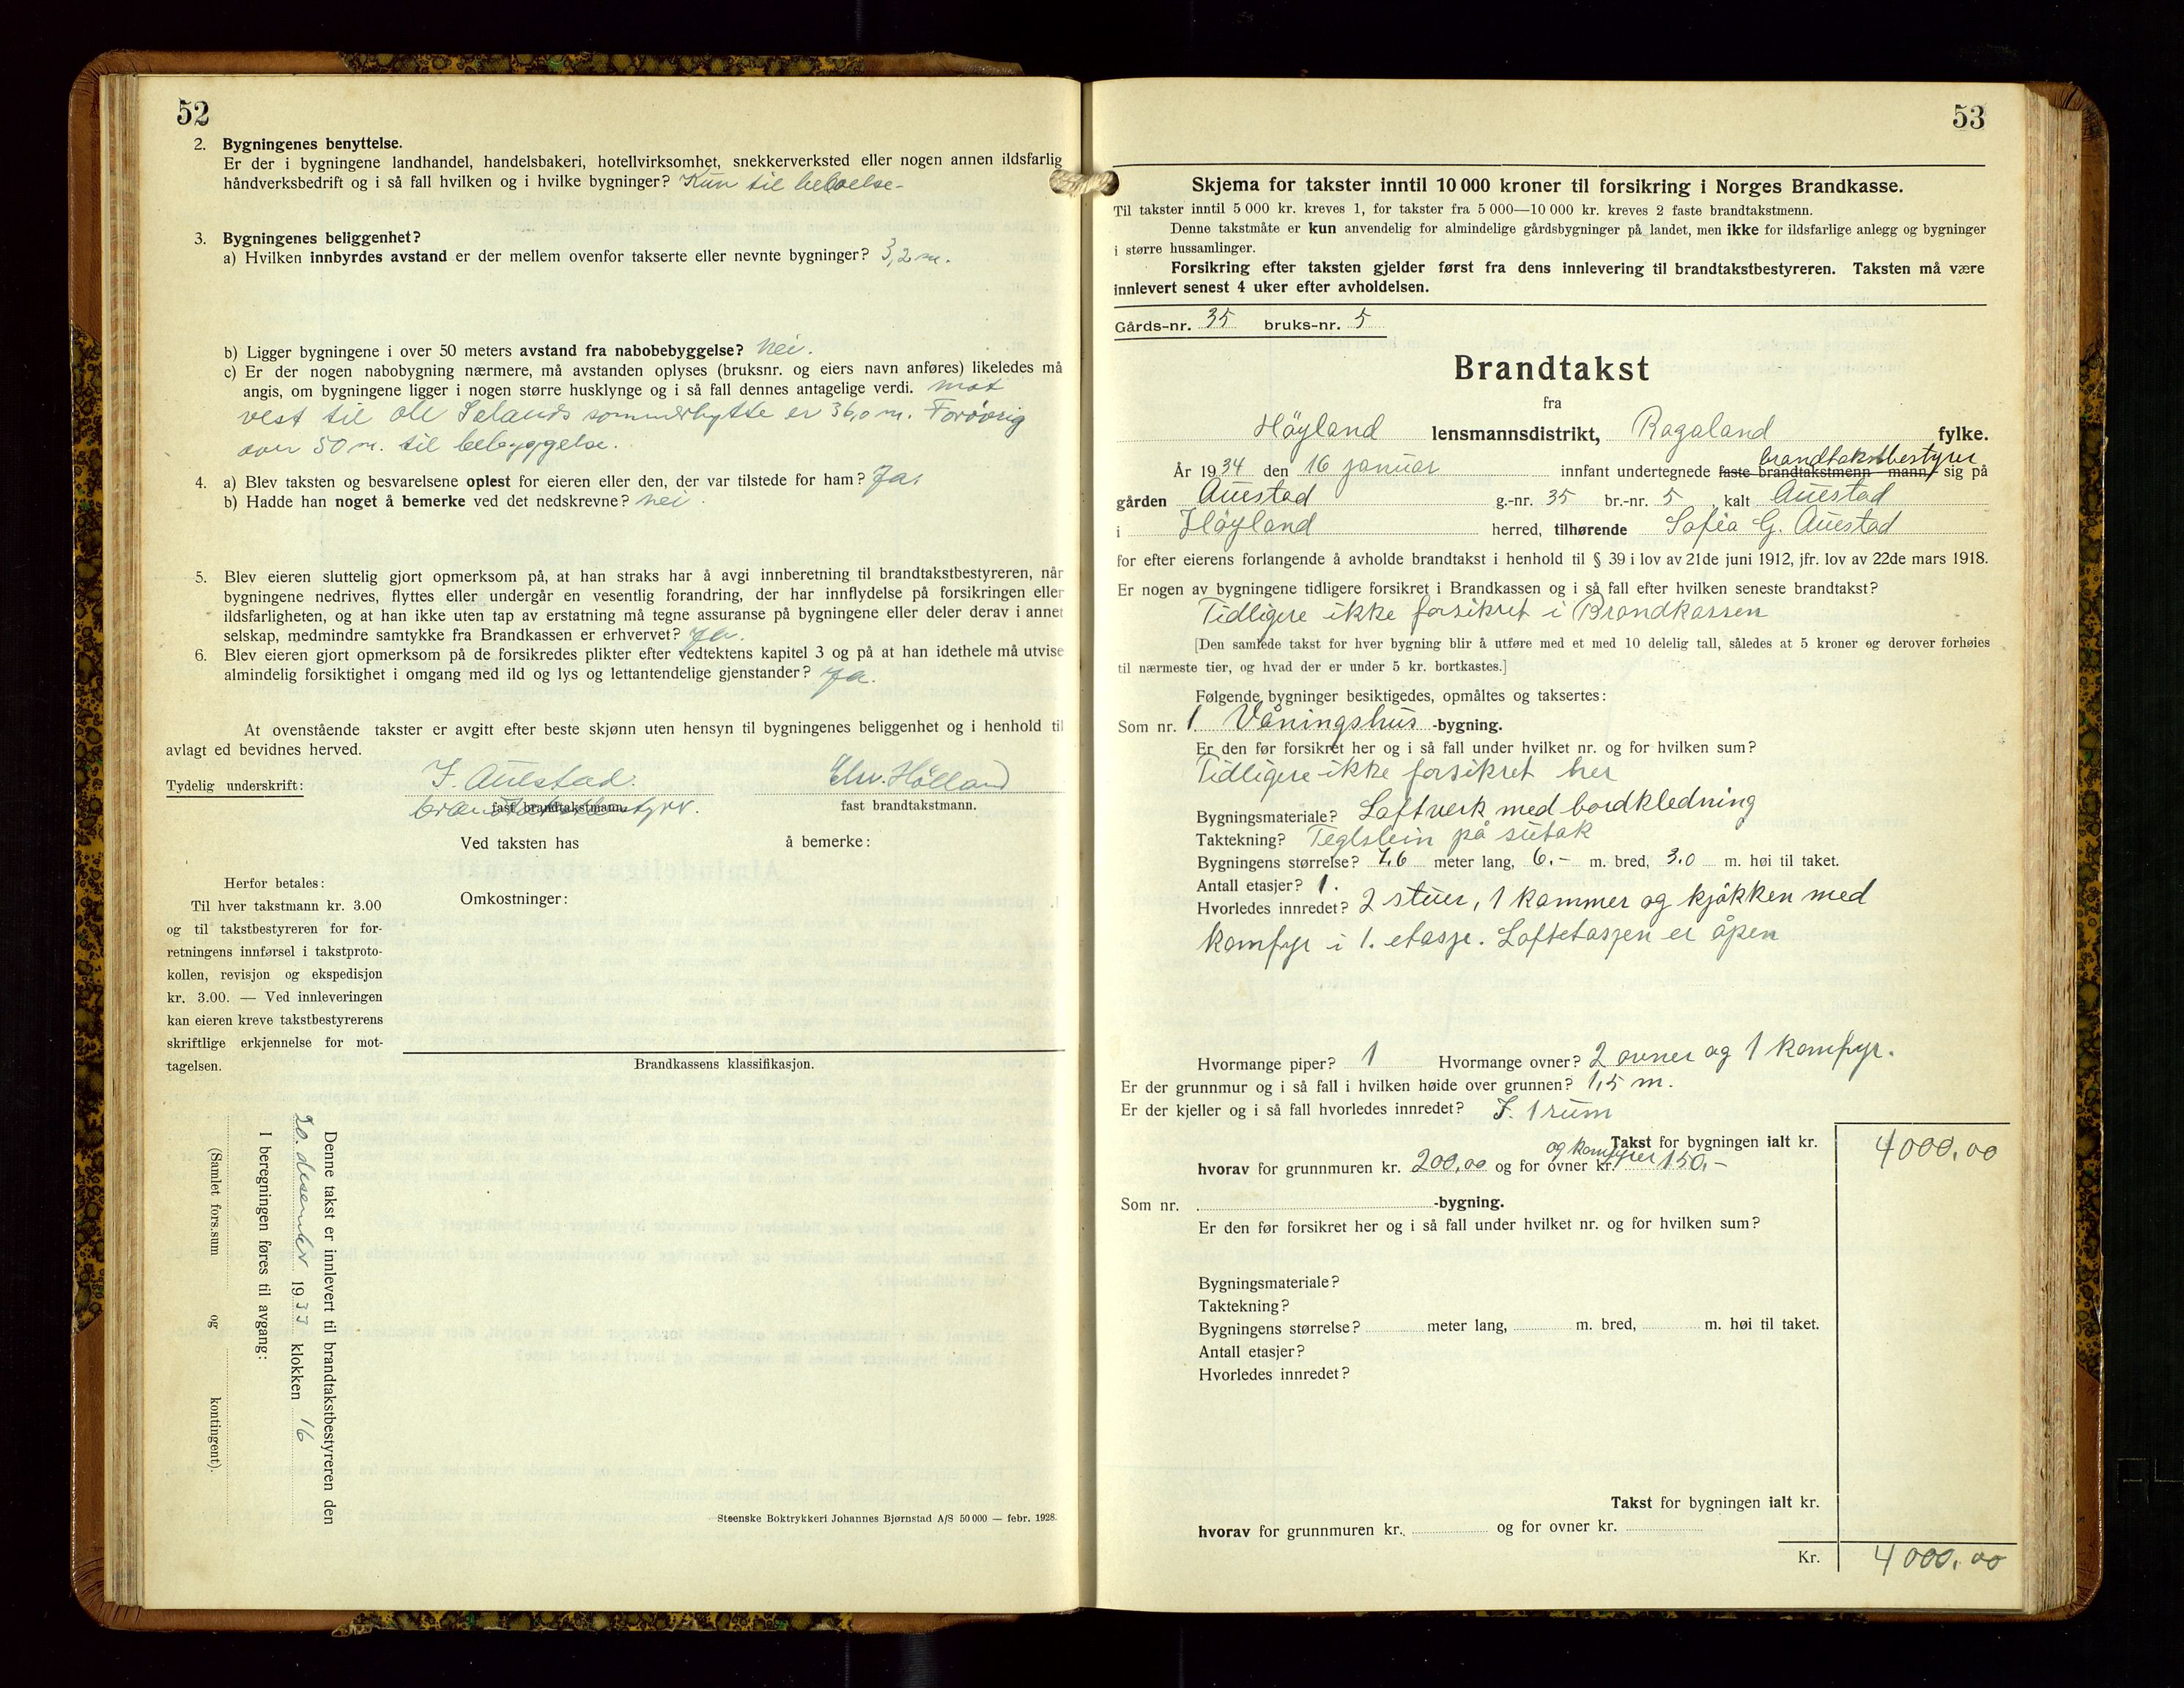 52
2. Bygningenes benyttelse.
Er der i bygningene landhandel, handelsbakeri, hotellvirksomhet, snekkerverksted eller nogen annen ildsfarlig
håndverksbedrift og i så fall hvilken og i hvilke bygninger? Kun til beboelse-
3. Bygningenes beliggenhet?
a) Hvilken innbyrdes avstand er der mellem ovenfor takserte eller nevnte bygninger? 3,2 m.
b) Ligger bygningene i over 50 meters avstand fra nabobebyggelse? nei.
c) Er der nogen nabobygning nærmere, må avstanden oplyses (bruksnr. og eiers navn anføres) likeledes må
angis, om bygningene ligger i nogen større husklynge og i så fall dennes antagelige verdi. mot
vest til Ole Selands sommerhytte er 36,0 m. Forøvrig
over 50 m. til bebyggelse.
4. a) Blev taksten og besvarelsene oplest for eieren eller den, der var tilstede for ham? Ja.
b) Hadde han noget å bemerke ved det nedskrevne? nei.
5. Blev eieren sluttelig gjort opmerksom på, at han straks har å avgi innberetning til brandtakstbestyreren, når
bygningene nedrives, flyttes eller undergår en vesentlig forandring, der har innflydelse på forsikringen eller
ildsfarligheten, og at han ikke uten tap av erstatning må tegne assuranse på bygningene eller deler derav i annet
selskap, medmindre samtykke fra Brandkassen er erhvervet? Ja.
6. Blev eieren gjort opmerksom på de forsikredes plikter efter vedtektens kapitel 3 og på at han idethele må utvise
almindelig forsiktighet i omgang med ild og lys og lettantendelige gjenstander? Ja.
At ovenstående takster er avgitt efter beste skjønn uten hensyn til bygningenes beliggenhet og i henhold til
avlagt ed bevidnes herved.
Tydelig underskrift: J. Auestad. Chr. Hølland
fast brandtakstmann. brandtakstbestyrer. fast brandtakstmann.
Ved taksten has å bemerke:
Omkostninger:
Herfor betales:
Til hver takstmann kr. 3.00
og til takstbestyreren for for-
retningens innførsel i takstproto-
kollen, revisjon og ekspedisjon
kr. 3.00. — Ved innleveringen
kan eieren kreve takstbestyrerens
skriftlige erkjennelse for mot-
tagelsen.
Brandkassens klassifikasjon.
Denne takst er innlevert til brandtakstbestyreren den
20. desember 1933 klokken 16
I beregningen føres til avgang:
(Samlet fors.sum og kontingent).
Steenske Boktrykkeri Johannes Bjørnstad A/S 50 000 — febr. 1928.
53
Skjema for takster inntil 10 000 kroner til forsikring i Norges Brandkasse.
Til takster inntil 5 000 kr. kreves 1, for takster fra 5 000—10 000 kr. kreves 2 faste brandtakstmenn.
Denne takstmåte er kun anvendelig for almindelige gårdsbygninger på landet, men ikke for ildsfarlige anlegg og bygninger
i større hussamlinger.
Forsikring efter taksten gjelder først fra dens innlevering til brandtakstbestyreren. Taksten må være
innlevert senest 4 uker efter avholdelsen.
Gårds-nr. 35 bruks-nr. 5
Brandtakst
fra
Höyland lensmannsdistrikt, Rogaland fylke.
brandtakstbestyrer
År 1934 den 16 januar innfant undertegnede faste brandtakstmenn mann sig på
gården Auestad g.-nr. 35 br.-nr. 5, kalt Auestad
i Höyland herred, tilhørende Sofia G. Auestad
for efter eierens forlangende å avholde brandtakst i henhold til § 39 i lov av 21de juni 1912, jfr. lov av 22de mars 1918.
Er nogen av bygningene tidligere forsikret i Brandkassen og i så fall efter hvilken seneste brandtakst?
Tidligere ikke forsikret i Brandkassen
[Den samlede takst for hver bygning blir å utføre med et med 10 delelig tall, således at 5 kroner og derover forhøies
til nærmeste tier, og hvad der er under 5 kr. bortkastes.]
Følgende bygninger besiktigedes, opmåltes og taksertes:
Som nr. 1 Våningshus -bygning.
Er den før forsikret her og i så fall under hvilket nr. og for hvilken sum?
Tidligere ikke forsikret her
Bygningsmateriale? Laftverk med bordkledning
Taktekning? Teglstein på sutak
Bygningens størrelse? 7,6 meter lang, 6.- m. bred, 3.0 m. høi til taket.
Antall etasjer? 1.
Hvorledes innredet? 2 stuer, 1 kammer og kjökken med
komfyr i 1. etasje. Loftetasjen er åpen
Hvormange piper? 1 Hvormange ovner? 2 ovner og 1 komfyr.
Er der grunnmur og i så fall i hvilken høide over grunnen? 1,5 m.
Er der kjeller og i så fall hvorledes innredet? J. 1 rum
Takst for bygningen ialt kr. 4000,00
og komfyrer
hvorav for grunnmuren kr. 200,00 og for ovner kr. 150,-
Som nr. -bygning.
Er den før forsikret her og i så fall under hvilket nr. og for hvilken sum?
Bygningsmateriale?
Taktekning?
Bygningens størrelse? meter lang, m. bred, m. høi til taket.
Antall etasjer?
Hvorledes innredet?
Takst for bygningen ialt kr.
hvorav for grunnmuren kr. og for ovner kr.
Kr. 4000,00